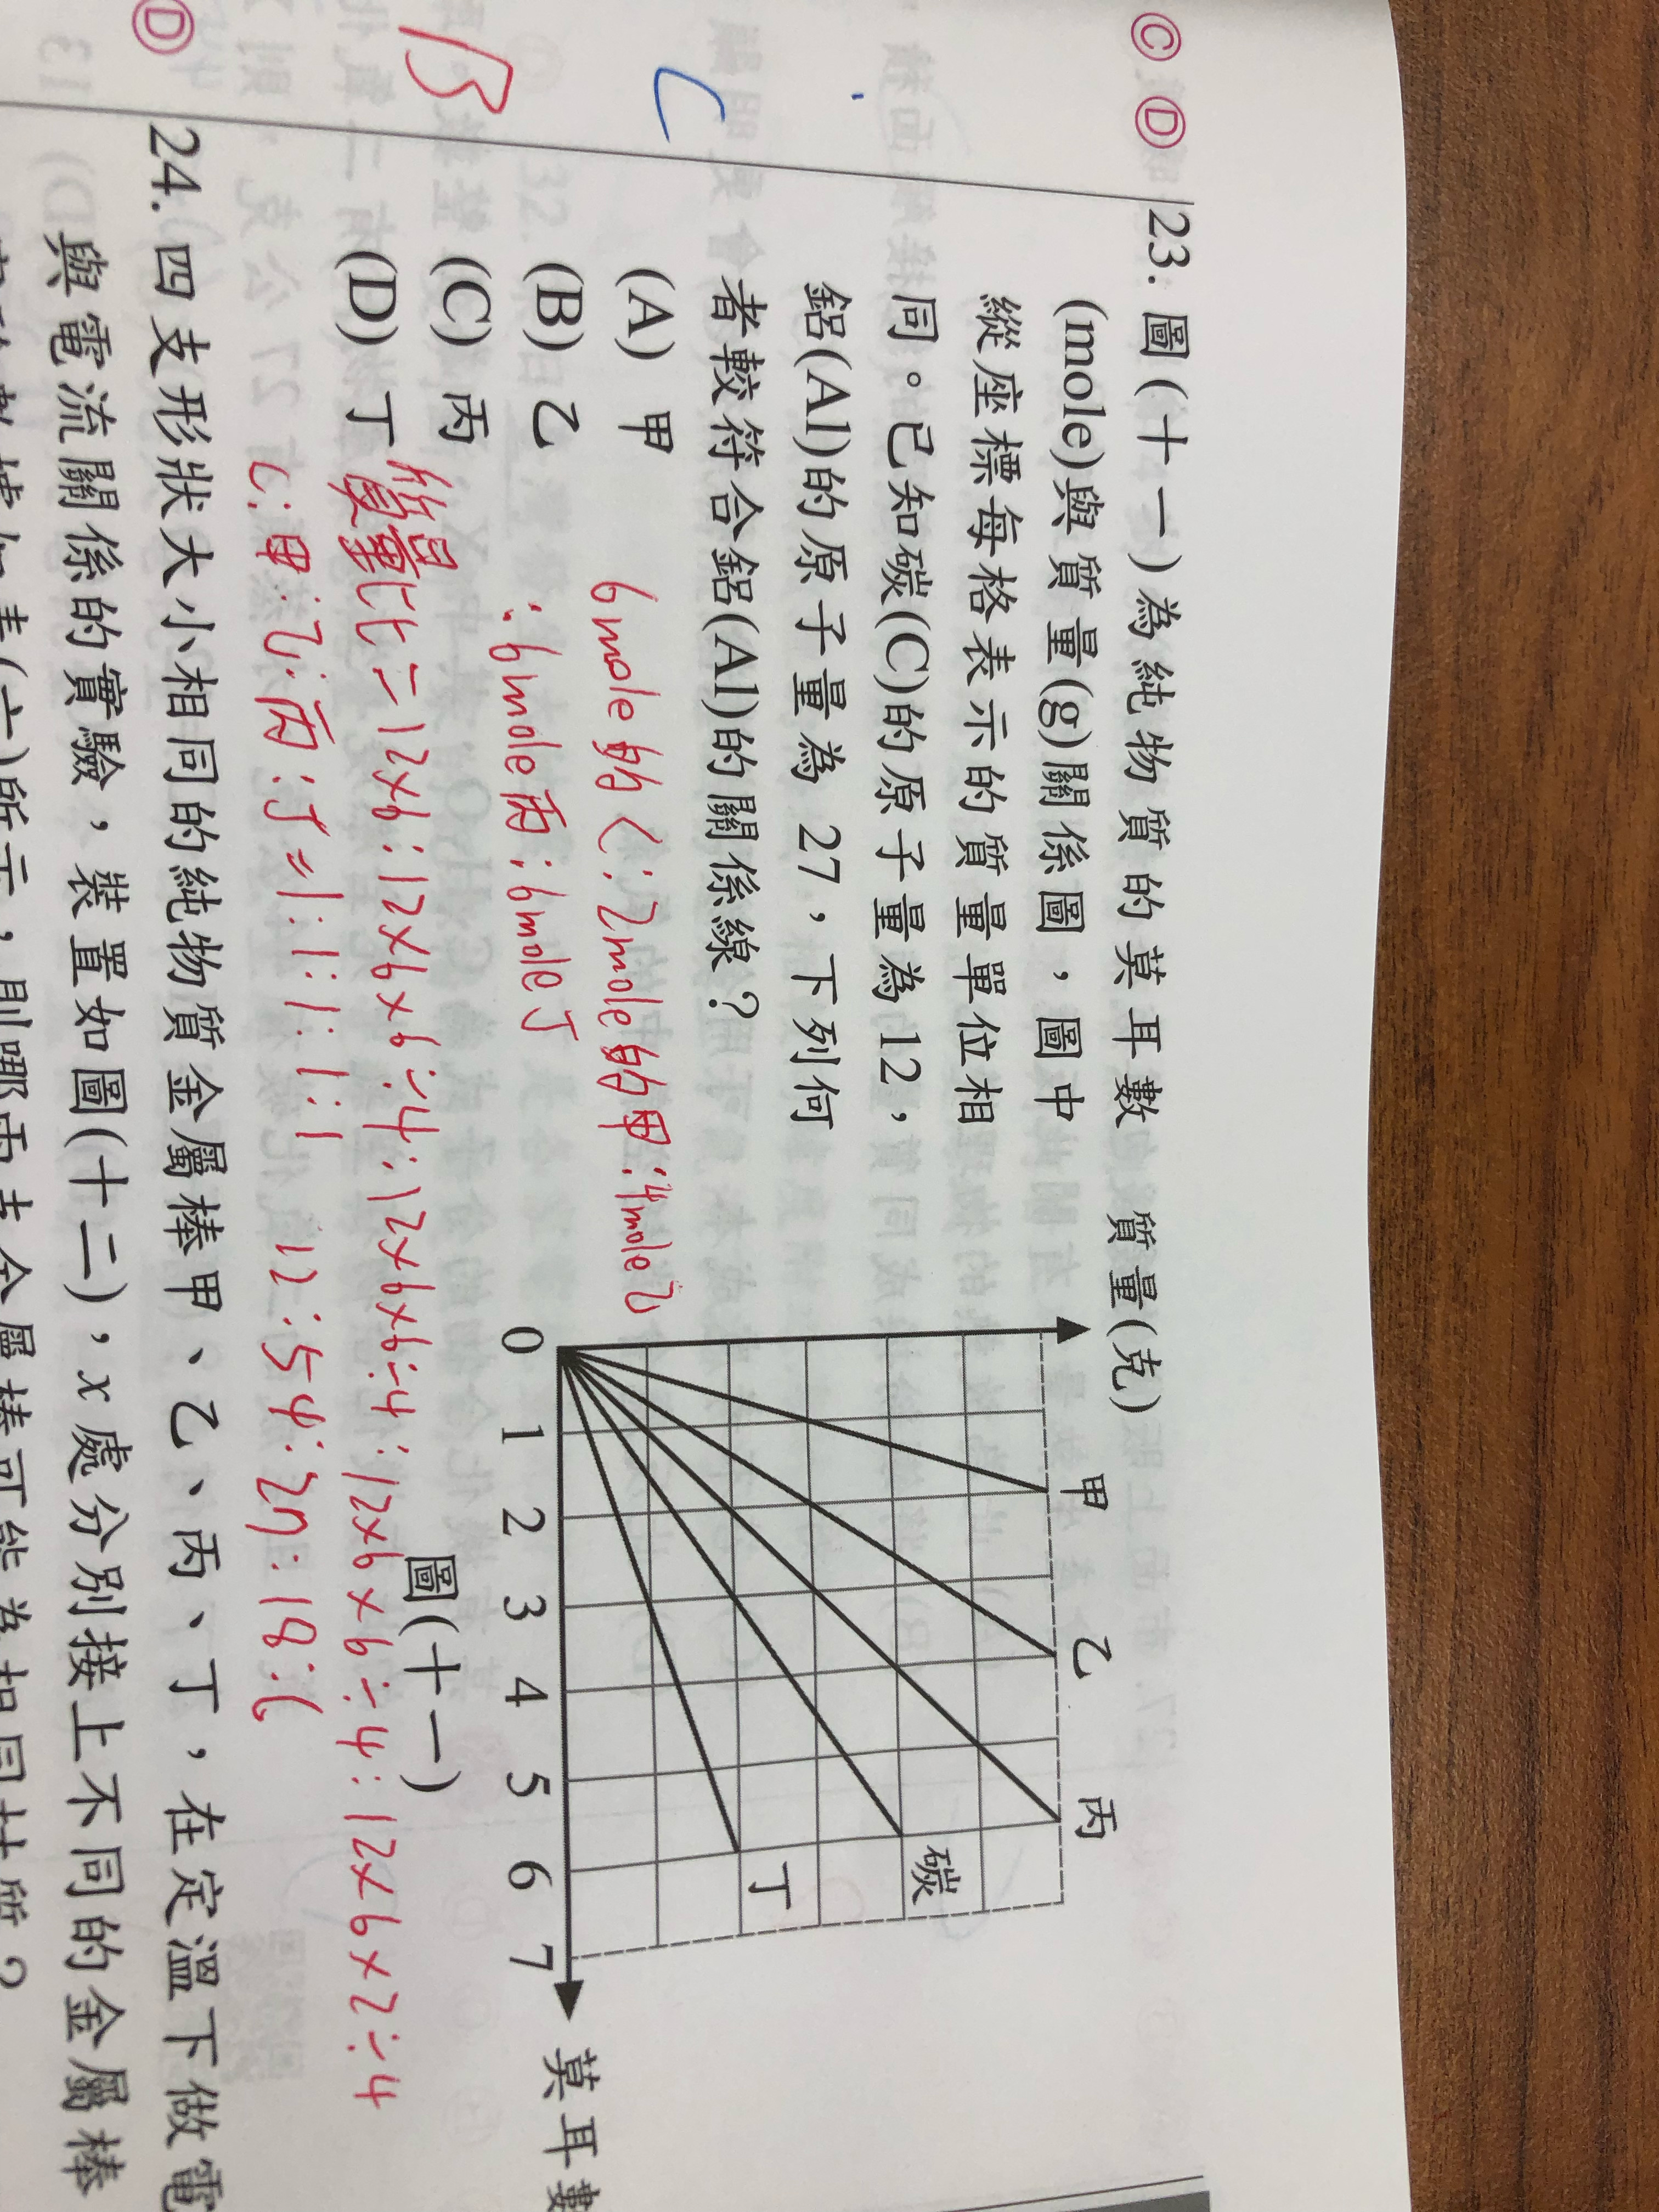 Ⓒ Ⓓ
23. 圖(十一)為純物質的莫耳數
(mole)與質量(g)關係圖，圖中
縱座標每格表示的質量單位相
同。已知碳(C)的原子量為12，
鋁(Al)的原子量為 27，下列何
者較符合鋁(Al)的關係線？
C
(A) 甲
(B) 乙
(C) 丙
(D) 丁
B
6mole的C:2mole的甲:4mole乙
:6mole丙:6mole丁
質量比=12×6:12×6×6÷4:12×6×6÷4:12×6×6÷4:12×6×2÷4
C:甲:乙:丙:丁=1:1:1:1:1
12:54:27:18:6
質量(克)
甲
乙
丙
碳
丁
0 1 2 3 4 5 6 7
莫耳數
圖(十一)
Ⓓ
24. 四支形狀大小相同的純物質金屬棒甲、乙、丙、丁，在定溫下做電
與電流關係的實驗，裝置如圖(十二)，x處分別接上不同的金屬棒